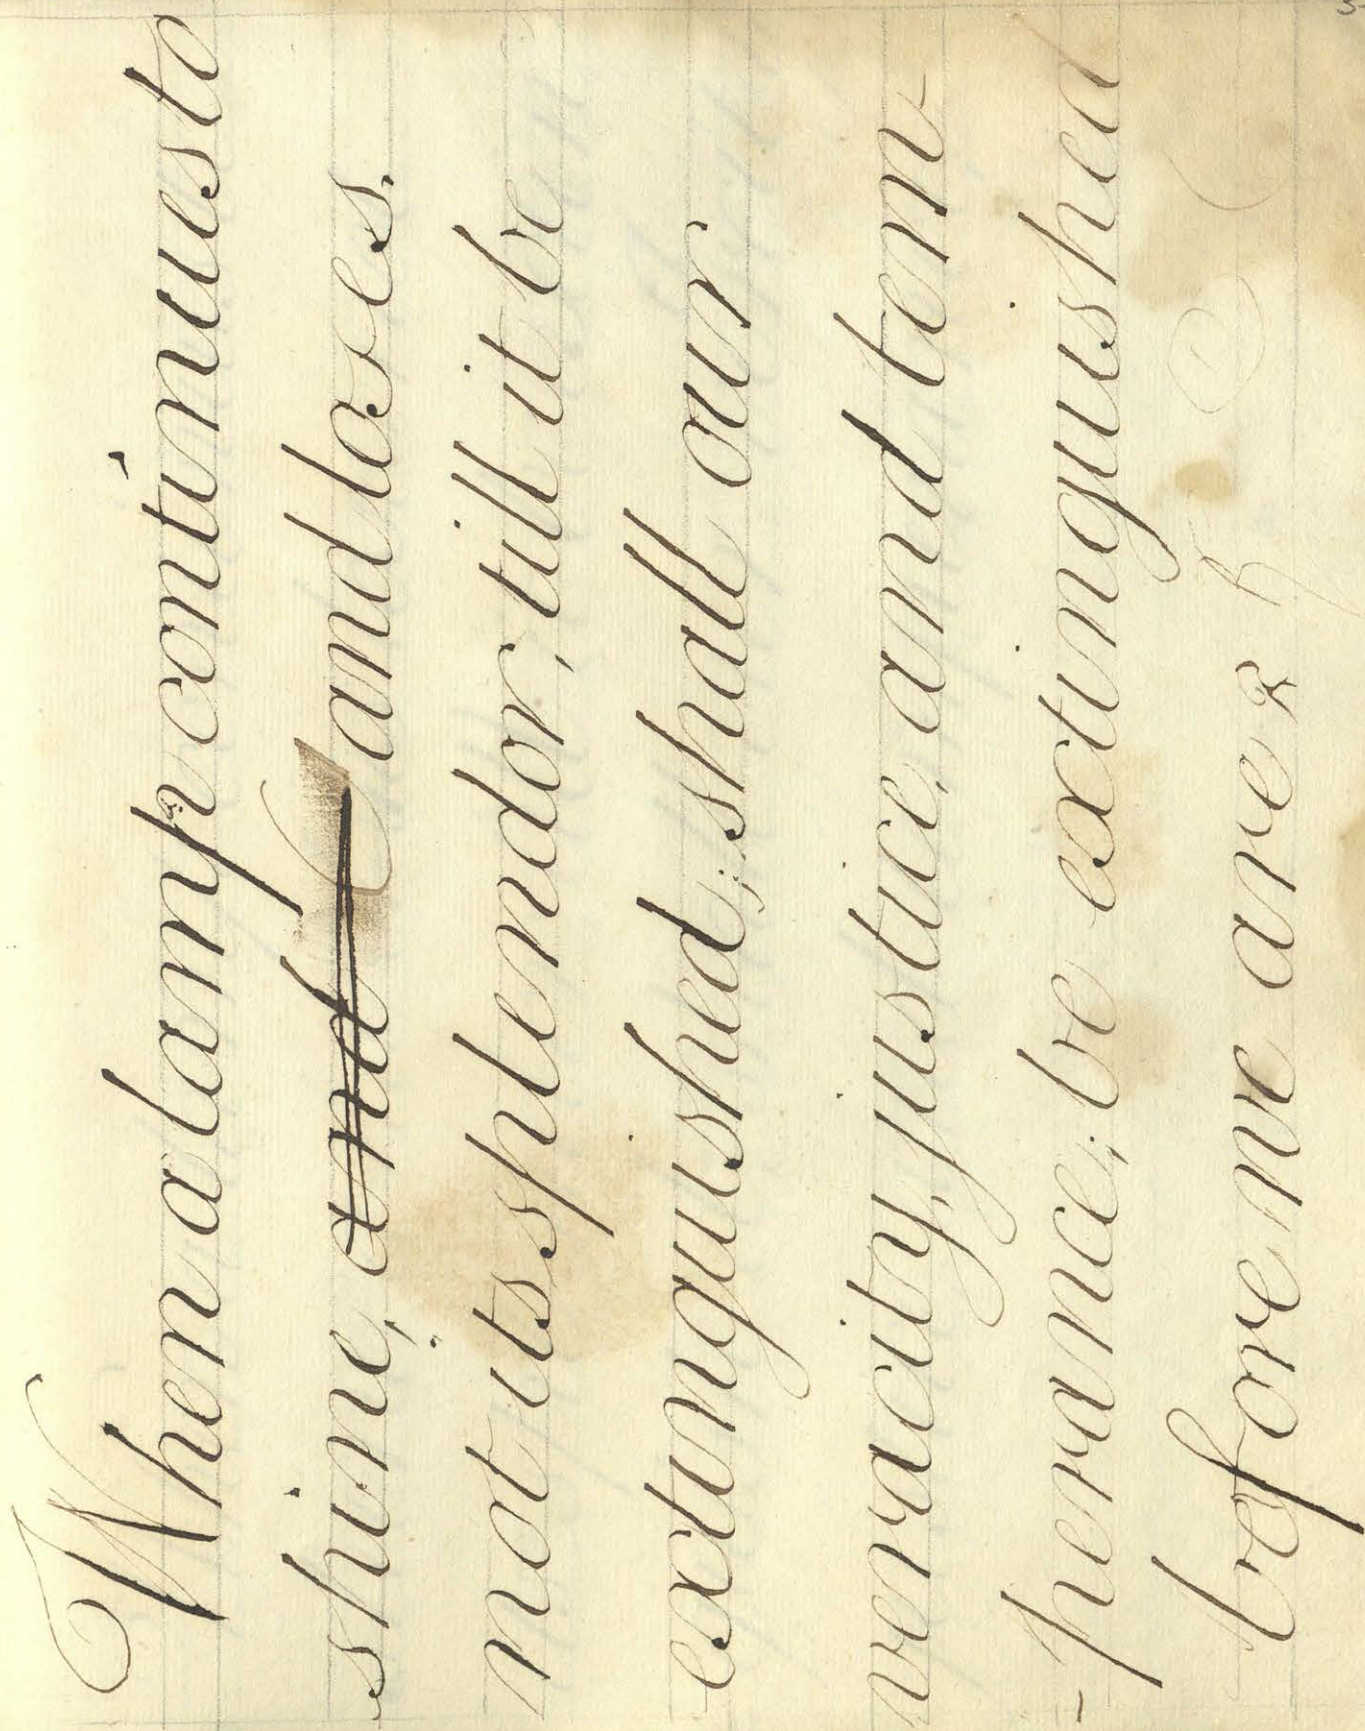 When a lamp continues to
shine, and and loses.
not its splendor, till it be
extinguished; shall our
veracity, justice, and tem
-perance; be extinguished
before we are?